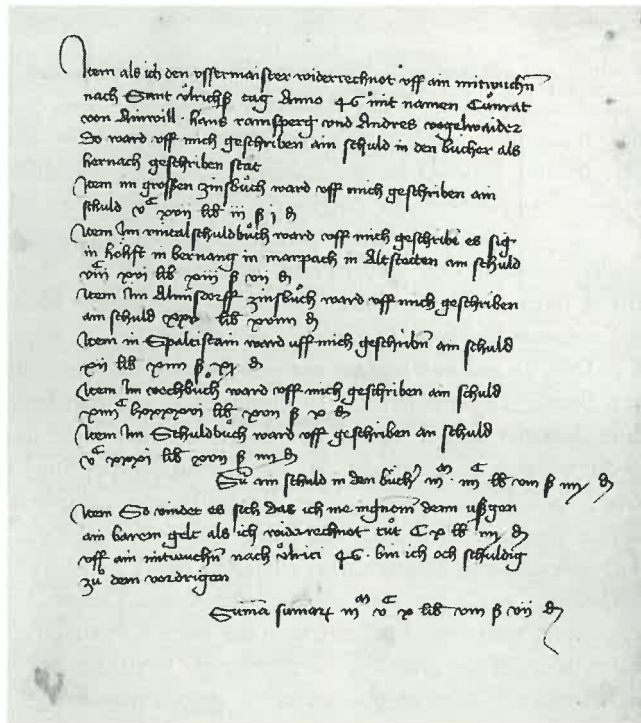 Item als ich den ussermaister widerrechnot uff ain mitwuchn̄
nach Sant Ůlrichs tag Anno 46 mit namen Cůnrat
von Ainwill · hans ramsperg und Andres vogelwaider
Do ward uff mich geschriben ain schuld in den bücher als
hernach geschriben stat
Item im grossen zinsbůch ward uff mich geschriben ain
schuld vᶜ xvii lib iii ß i d
Item Im schuldbůch ward uff mich geschribē es sig
in höhst in bernang in marpach in Altstetten ain schuld
viiiᶜ xvi lib xiii ß vii d
Item Im Almsdorff zinsbůch ward uff mich geschriben
ain schuld xxv lib xviiii d
Item in Spaltistain ward uff mich geschribn̄ ain schuld
xii lib xiiii ß xj d
Item Im wechbůch ward uff mich geschriben ain schuld
xiiiiᶜ lxxxxvi lib xvii ß x d
Item Im Schuldbůch ward uff geschriben an schuld
vᶜ xxxi lib xvii ß iiii d
Sū ain schuld in den büch iiiᵐ · iiiiᶜ lib viii ß iiij d
Item So vindet es sich das ich me ingnom̄ denn ußgen
ain barem gelt als ich widerrechnot tůt C x lib iiij d
uff ain mitwuchn̄ nach ůlrici 46 · bin ich och schuldig
zů dem vordrigen
Sum̄a sumarꝝ iiiᵐ vᶜ x lib viii ß vii d